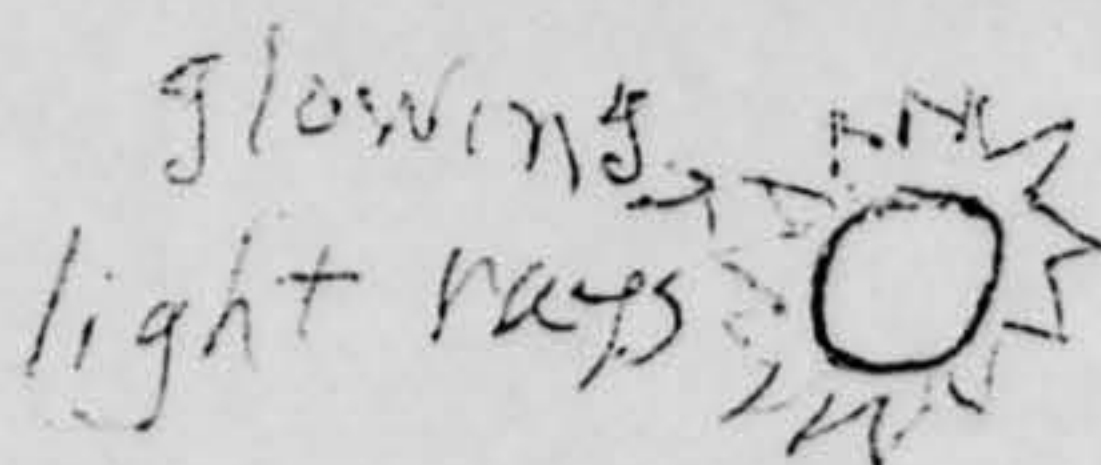 glowing
light rays